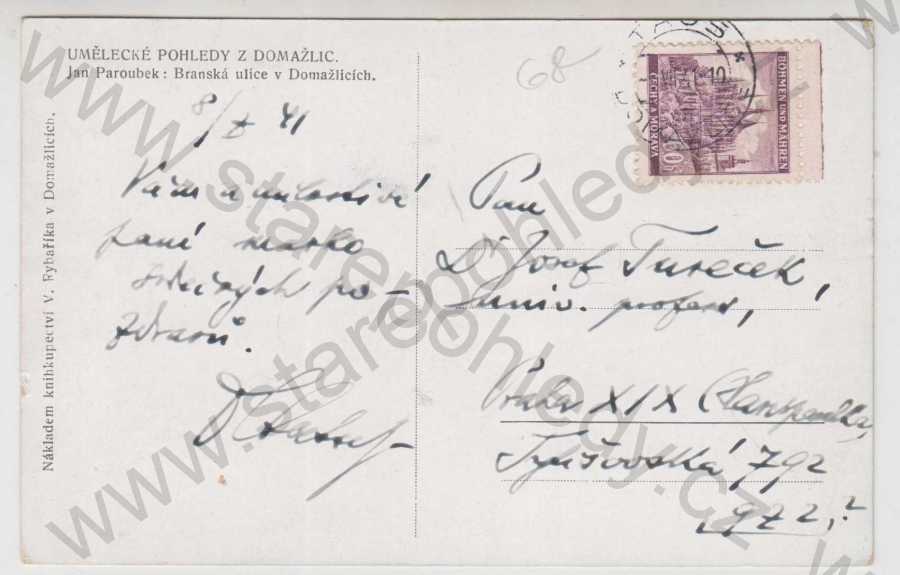 UMĚLECKÉ POHLEDY Z DOMAŽLIC.
Jan Paroubek: Branská ulice v Domažlicích.
Nákladem knihkupectví V. Rybaříka v Domažlicích.
8/X 41
Vám a milostivé
paní
srdečných po-
zdravů.
Dr
68
BÖHMEN UND MÄHREN
ČECHY A MORAVA
Pan
Dr Josef Tureček,
univ. profesor,
Praha XIX (Hanspaulka,
792
www.starepohledy.cz